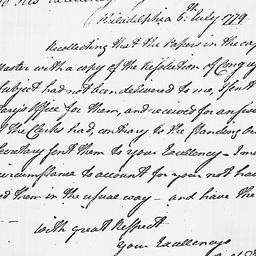 Philadelphia 6th July 1779
Recollecting that the Papers in the
Master with a copy of the Resolution of
subject had not been delivered to me, I sent
Office for them, and received for answer
the Clerks had, contrary to the standing
Secretary sent them to your Excellency
circumstance to account for your not
them in the usual way - and have the
with great Respect
Your Excellency's